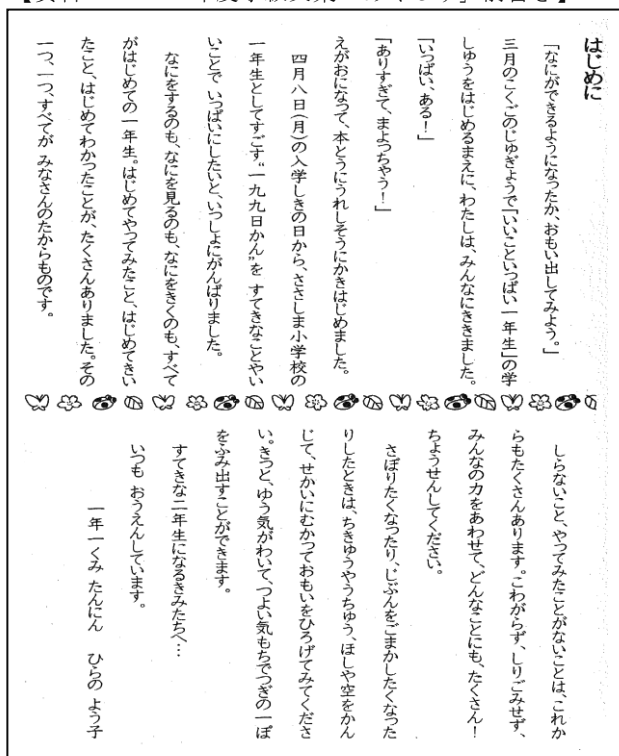 はじめに
「なにができるようになったか、おもい出してみよう。」
三月のこくごのじゅぎょうで「いいこといっぱい一年生」の学
しゅうをはじめるまえに、わたしは、みんなにききました。
「いっぱい、ある!」
「ありすぎて、まよっちゃう!」
えがおになって、本とうにうれしそうにかきはじめました。
四月八日(月)の入学しきの日から、ささしま小学校の
一年生としてすごす“一九九日かん”を すてきなことやい
いことで いっぱいにしたいと、いっしょにがんばりました。
なにをするのも、なにを見るのも、なにをきくのも、すべて
がはじめての一年生。はじめてやってみたこと、はじめてきい
たこと、はじめてわかったことが、たくさんありました。その
一つ、一つ、すべてが みなさんのたからものです。
しらないこと、やってみたことがないことは、これか
らもたくさんあります。こわがらず、しりごみせず、
みんなの力をあわせて、どんなことにも、たくさん!
ちょうせんしてください。
さぼりたくなったり、じぶんをごまかしたくなった
りしたときは、ちきゅうやうちゅう、ほしや空をかん
じて、せかいにむかっておもいをひろげてみてくださ
い。きっと、ゆう気がわいて、つよい気もちでつぎの一ぽ
をふみ出すことができます。
すてきな二年生になるきみたちへ…
いつも おうえんしています。
一年一くみ たんにん ひらの よう子